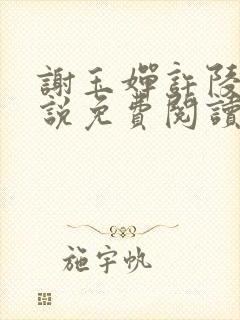 謝玉嬋許陵
說免費閱讀
施宇帆